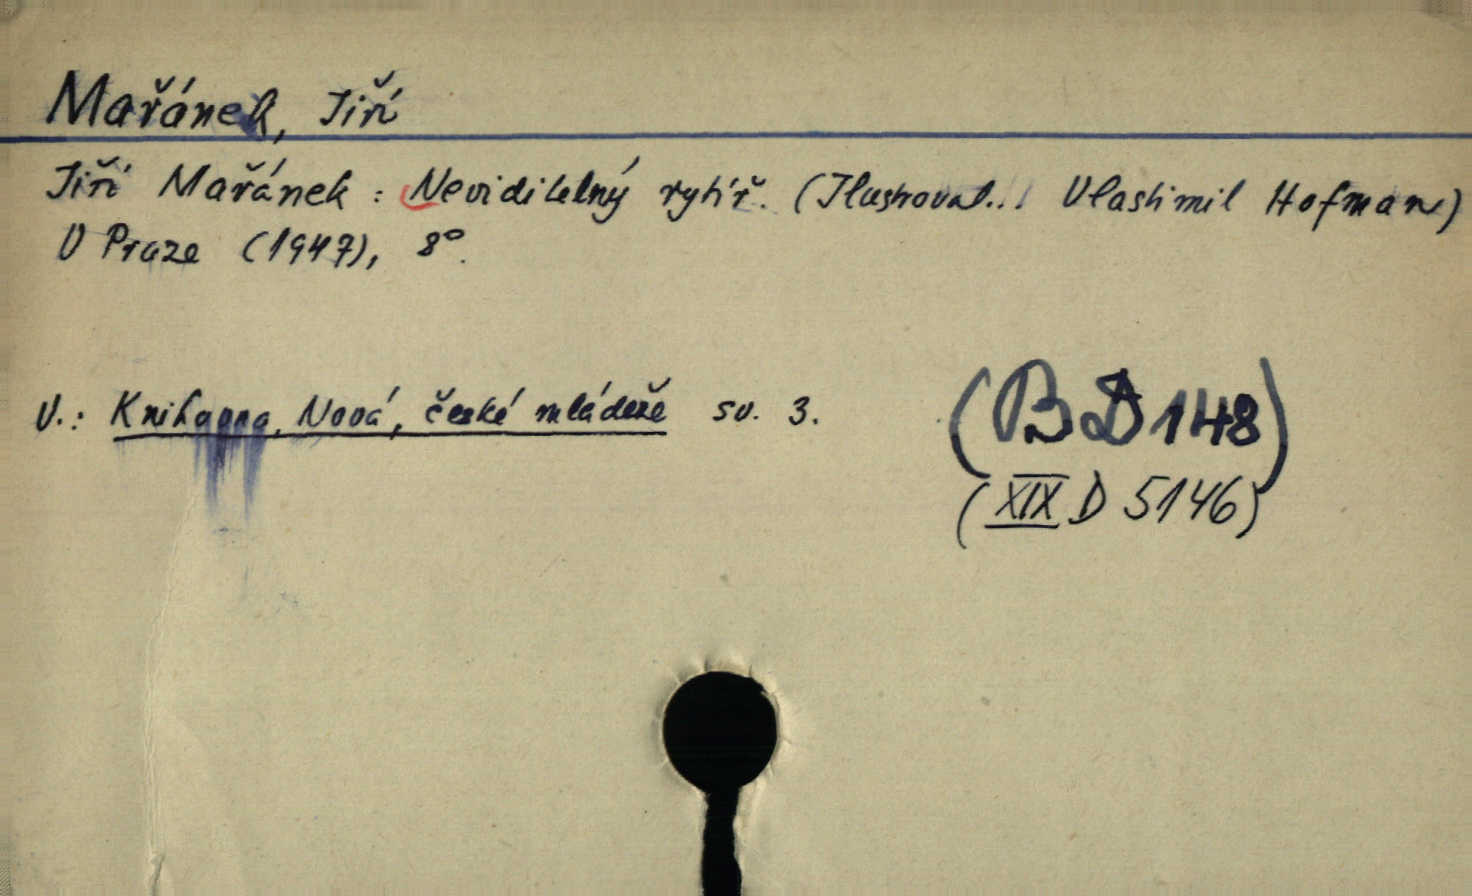 Mařánek, Jiří
Jiří Mařánek: Neviditelný rytíř. (Ilustroval... Vlastimil Hofman)
V Praze (1947), 8°.
V.: Knihovna, Nová, české mládeže sv. 3.
(BD 148)
(XIX D 5146)